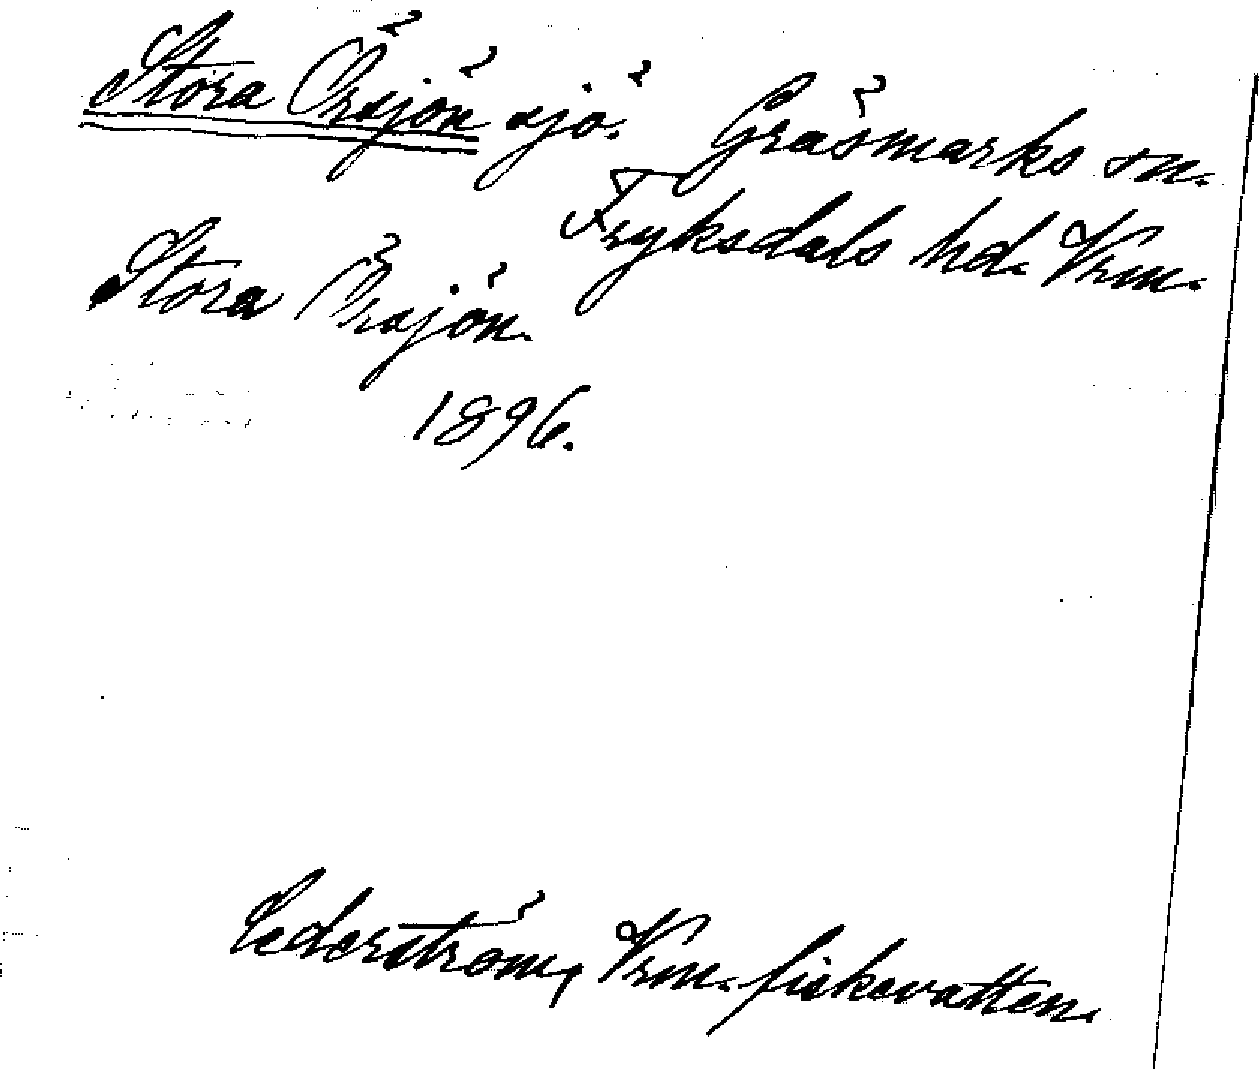 Stora Örsjön sjö. Gräsmarks sn.
Fryksdals hd. Vrm.
Stora Örsjön.
1896.
Cederström, Vrm. fiskevatten.